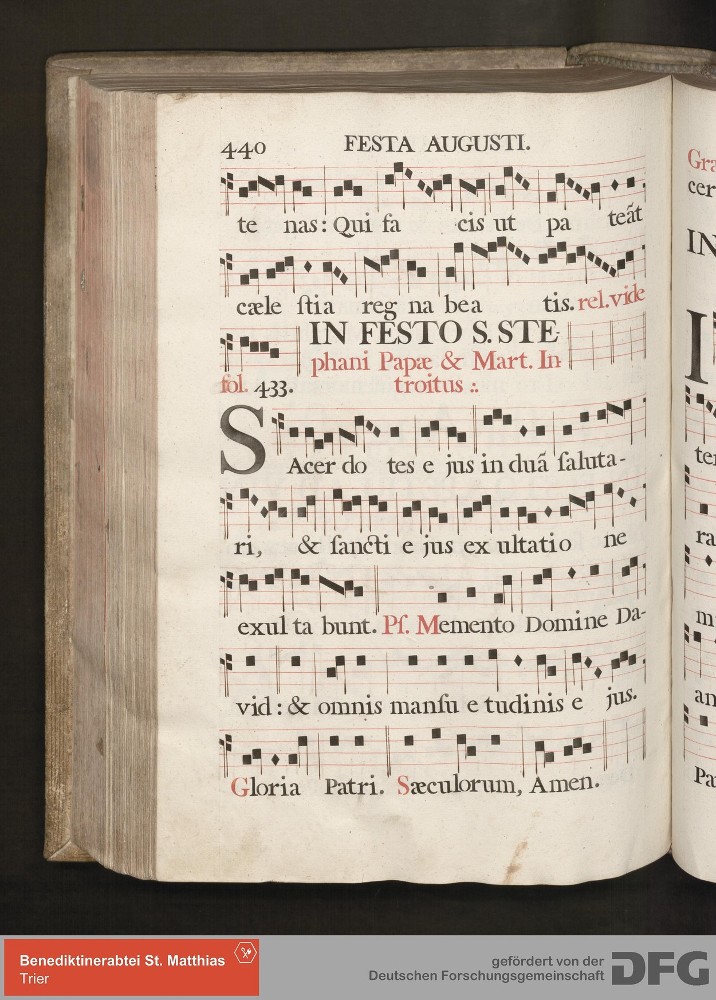 440 FESTA AUGUSTI.
te nas: Qui fa cis ut pa teãt
cæle ſtia reg na bea tis. rel. vide
IN FESTO S. STE-
phani Papæ & Mart. In-
fol. 433. troitus :.
SAcer do tes e jus in duã ſaluta-
ri, & ſancti e jus ex ultatio ne
exul ta bunt. Pſ. Memento Domine Da-
vid: & omnis manſu e tudinis e jus.
Gloria Patri. Sæculorum, Amen.
Gra
cer
IN
I
ter
ra
m
an
Pa
Benediktinerabtei St. Matthias
Trier
gefördert von der
Deutschen Forschungsgemeinschaft
DFG